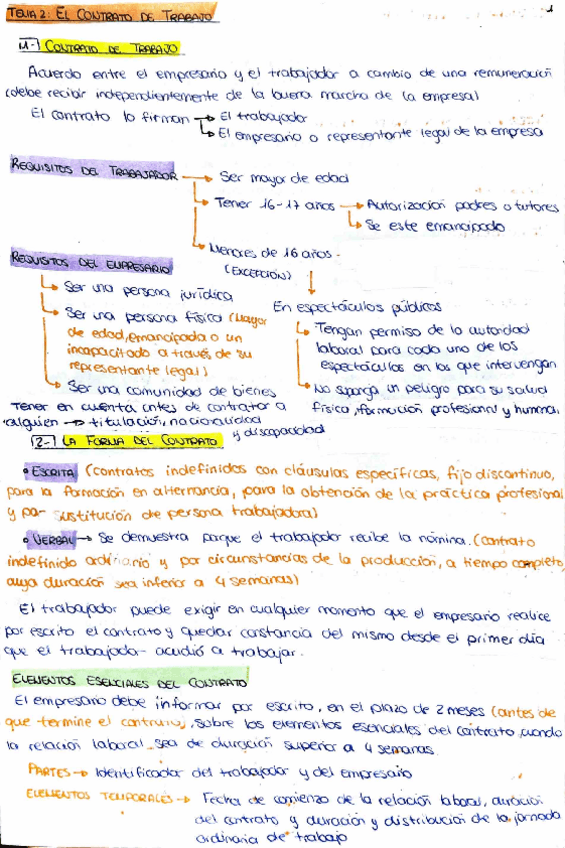 TEMA 2: EL CONTRATO DE TRABAJO
1
1.-) CONTRATO DE TRABAJO
Acuerdo entre el empresario y el trabajador a cambio de una remuneración
(debe recibir independientemente de la buena marcha de la empresa)
El contrato lo firman → El trabajador
→ El empresario o representante legal de la empresa
REQUISITOS DEL TRABAJADOR → Ser mayor de edad
→ Tener 16-17 años → Autorización padres o tutores
→ Se este emancipado
→ Menores de 16 años.
(EXCEPCIÓN)
En espectáculos públicos
→ Tengan permiso de la autoridad
laboral para cada uno de los
espectáculos en los que intervengan
→ No suponga un peligro para su salud
física, formación profesional y humana.
REQUISITOS DEL EMPRESARIO
→ Ser una persona jurídica
→ Ser una persona física (Mayor
de edad, emancipada o un
incapacitado a través de su
representante legal)
→ Ser una comunidad de bienes
Tener en cuenta antes de contratar a
alguien → titulación, nacionalidad
y discapacidad
2.-) LA FORMA DEL CONTRATO
• ESCRITA (contratos indefinidos con cláusulas específicas, fijo discontinuo,
para la formación en alternancia, para la obtención de la práctica profesional
y por sustitución de persona trabajadora)
• VERBAL → Se demuestra porque el trabajador recibe la nómina. (contrato
indefinido ordinario y por circunstancias de la producción, a tiempo completo,
cuya duración sea inferior a 4 semanas)
El trabajador puede exigir en cualquier momento que el empresario realice
por escrito el contrato y quedar constancia del mismo desde el primer día
que el trabajador acudió a trabajar.
ELEMENTOS ESENCIALES DEL CONTRATO
El empresario debe informar por escrito, en el plazo de 2 meses (antes de
que termine el contrato), sobre los elementos esenciales del contrato cuando
la relación laboral sea de duración superior a 4 semanas.
PARTES → Identificador del trabajador y del empresario
ELEMENTOS TEMPORALES → Fecha de comienzo de la relación laboral, duración
del contrato y duración y distribución de la jornada
ordinaria de trabajo